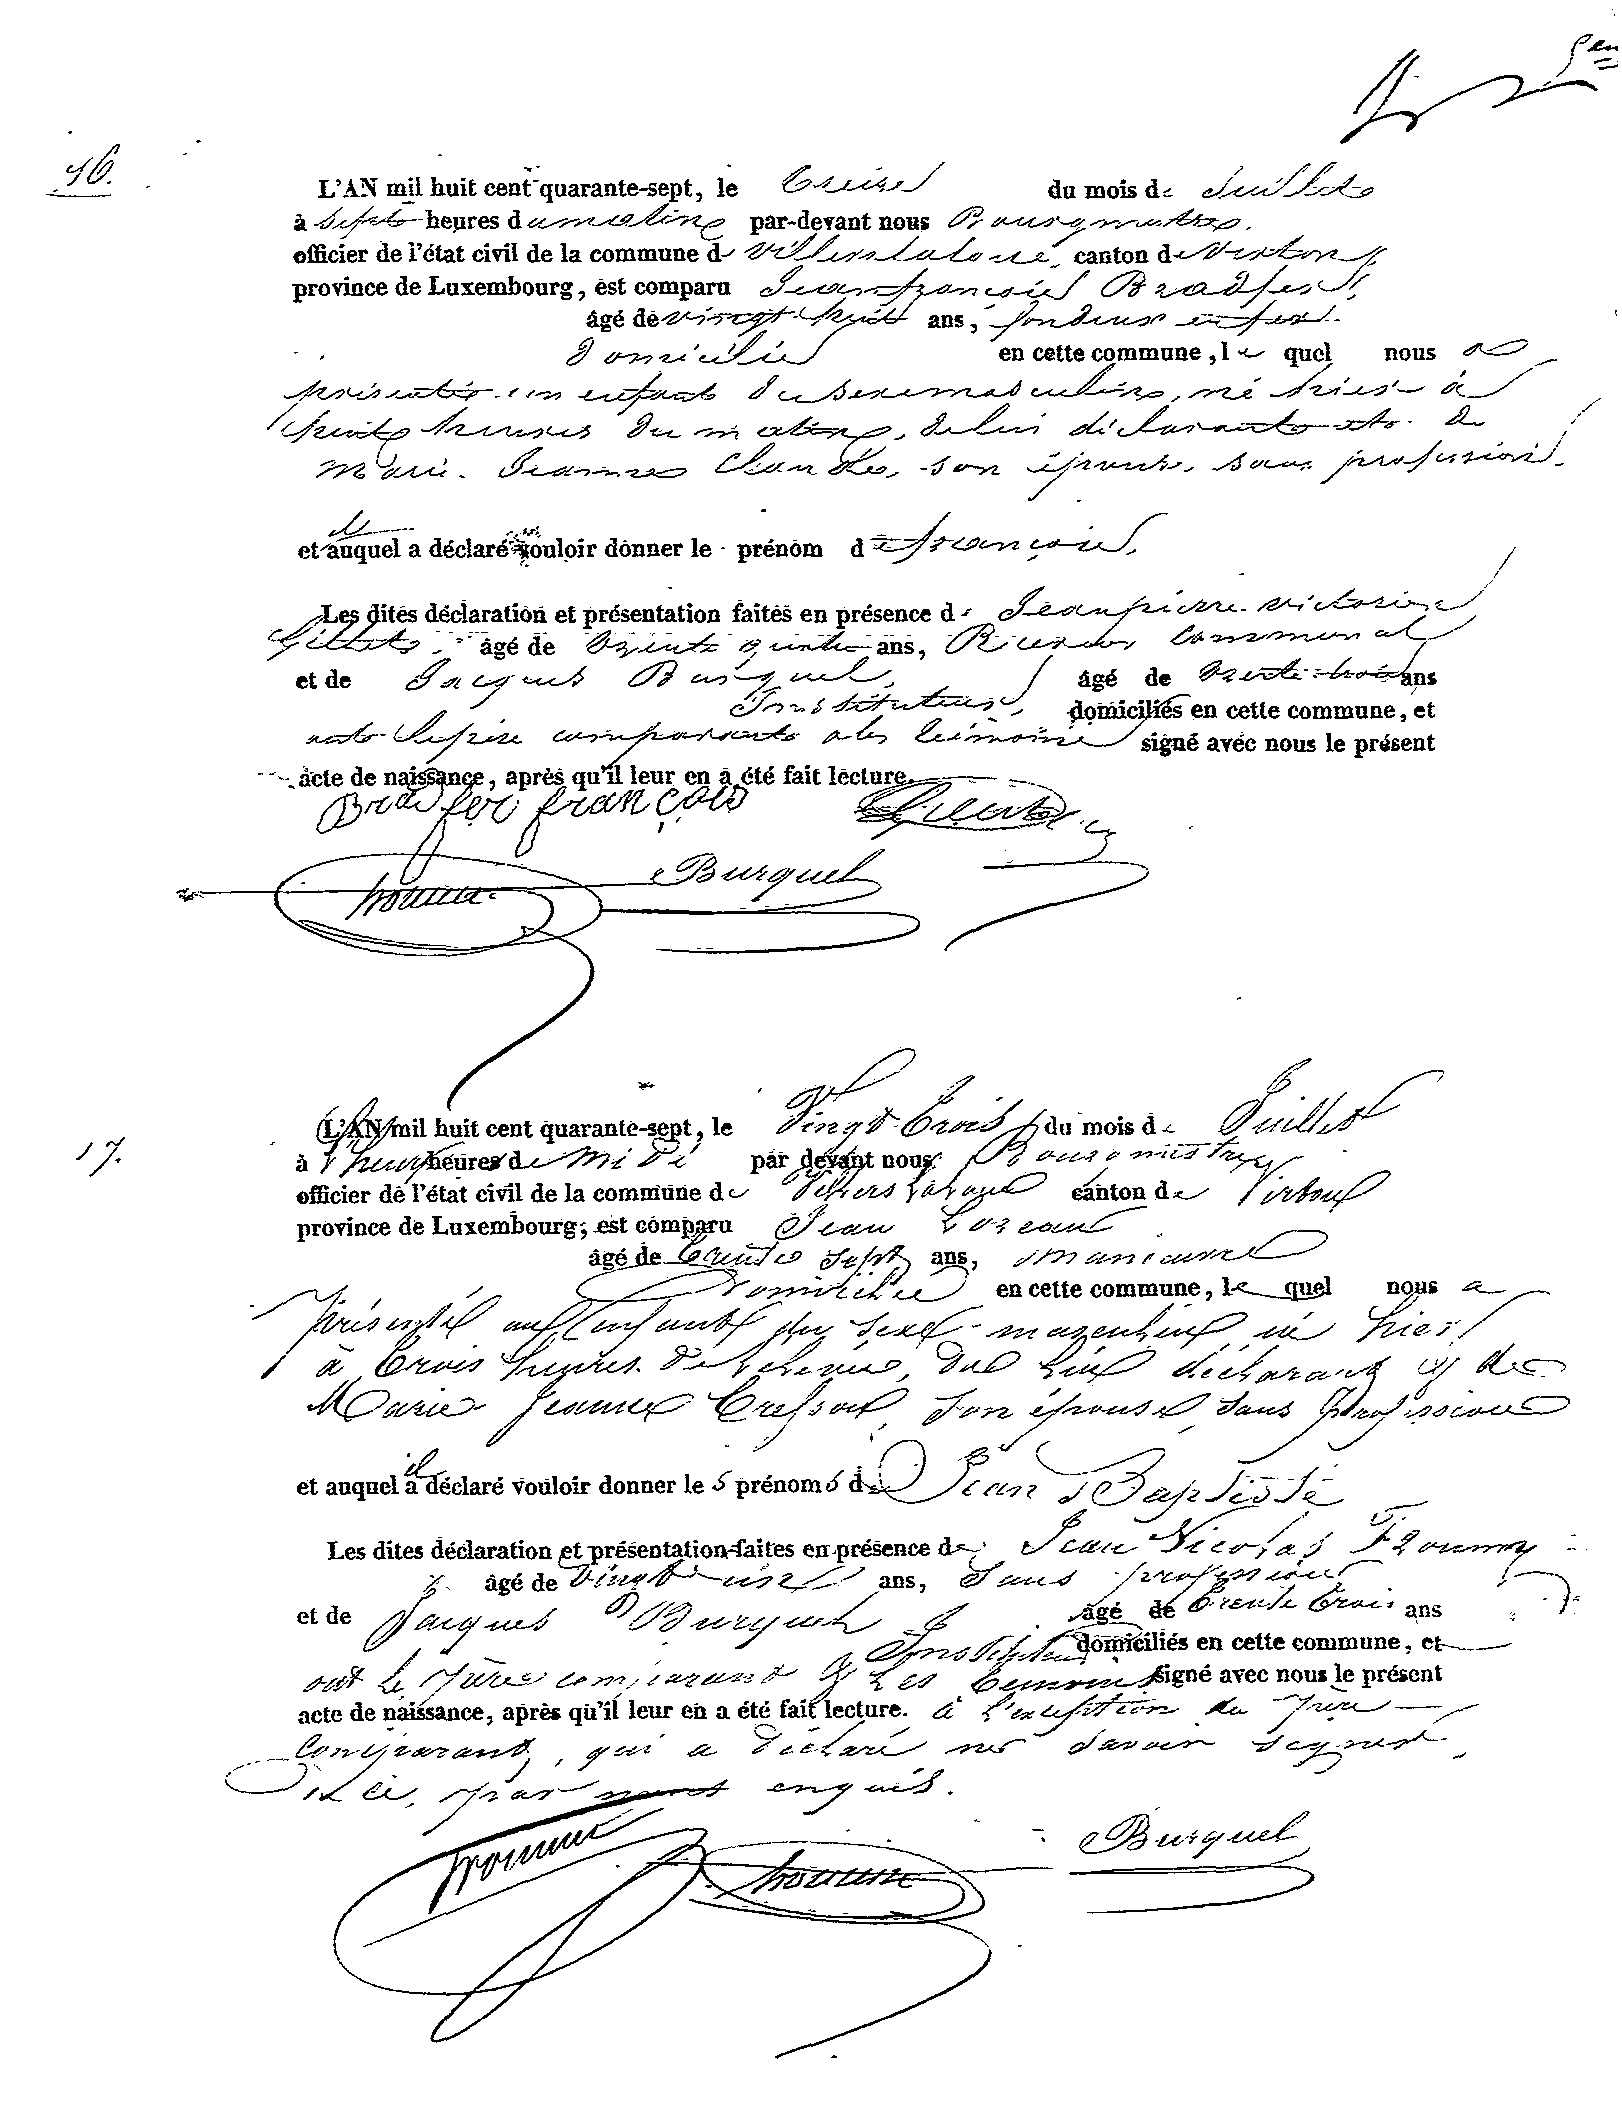 16.
L'AN mil huit cent quarante-sept, le treize du mois de Juillet
à sept heures du matin par-devant nous Bourgmestre
officier de l'état civil de la commune de Villerslaloue, canton de Virton,
province de Luxembourg, est comparu Jean françois Bradfer,
âgé de vingt huit ans, fondeur en fer.
domicilié en cette commune, le quel nous a
présenté un enfant du sexe masculin, né hier à
huit heures du matin, de lui déclarant et de
Marie Jeanne, son épouse, sans profession,
et auquel il a déclaré vouloir donner le prénom de françois,
Les dites déclaration et présentation faites en présence de Jean pierre victorien
âgé de trente quatre ans, Receveur Communal
et de Jacques Burquel, âgé de trente-trois ans
Instituteur, domiciliés en cette commune, et
ont le père comparant et les témoins signé avec nous le présent
acte de naissance, après qu'il leur en a été fait lecture.
Bradfer françois
Burquel
17.
L'AN mil huit cent quarante-sept, le Vingt Trois du mois de Juillet
à heures de Midi par devant nous Bourgmestre
officier de l'état civil de la commune de Villers laloue canton de Virton
province de Luxembourg, est comparu Jean Lozeau
âgé de trente sept ans, manœuvre
domicilié en cette commune, le quel nous a
Présenté un Enfant du sexe masculin né hier
à trois heures de relevée, de lui déclarant et de
Marie Jeanne Cresson, son épouse, sans Profession
et auquel il a déclaré vouloir donner les prénoms de Jean Baptiste
Les dites déclaration et présentation faites en présence de Jean Nicolas
âgé de Vingt un ans, Sans profession
et de Jacques Burquel âgé de trente trois ans
Instituteur domiciliés en cette commune, et
ont le père comparant et les témoins signé avec nous le présent
acte de naissance, après qu'il leur en a été fait lecture. à l'exception du père
comparant, qui a déclaré ne savoir signer
de ce, par nous enquis.
Burquel